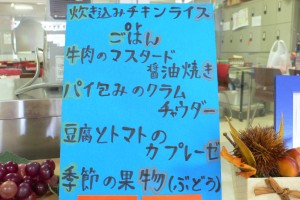 炊き込みチキンライス
ごはん
牛肉のマスタード
醤油焼き
パイ包みのクラム
チャウダー
豆腐とトマトの
カプレーゼ
季節の果物(ぶどう)